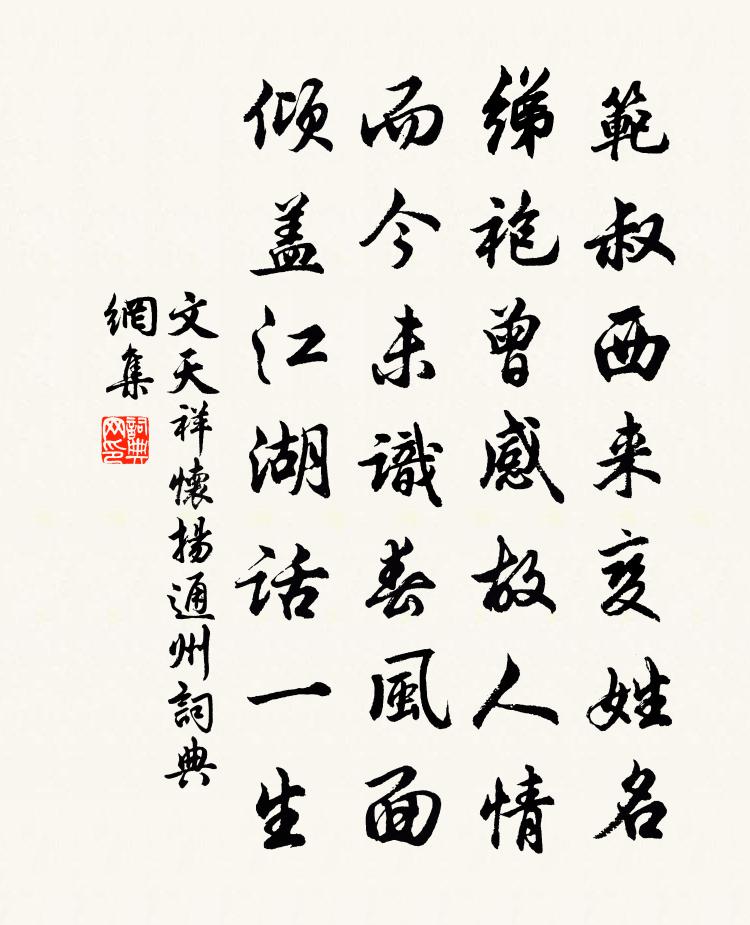 範叔西来变姓名
綈袍曾感故人情
而今未識春風面
傾盖江湖話一生
文天祥懷揚通州詞典
網集
詞典
网印